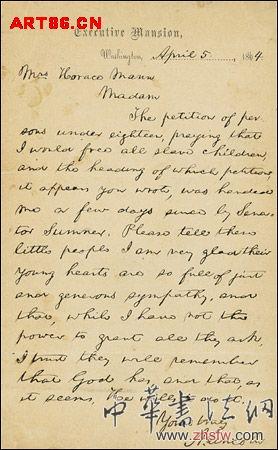 ART86.CN
Executive Mansion,
Washington, April 5, 1864.
Mrs Horace Mann
Madam
The petition of per
sons under eighteen, praying that
I would free all slave children,
and the heading of which petition
it appears you wrote, was handed
me a few days since by Sena
tor Sumner. Please tell these
little people I am very glad their
young hearts are so full of just
and generous sympathy, and
that, while I have not the
power to grant all they ask,
I trust they will remember
that God has, and that, as
it seems, He wills to do it.
Yours truly
A. Lincoln
中華書法網
www.zhsfw.com